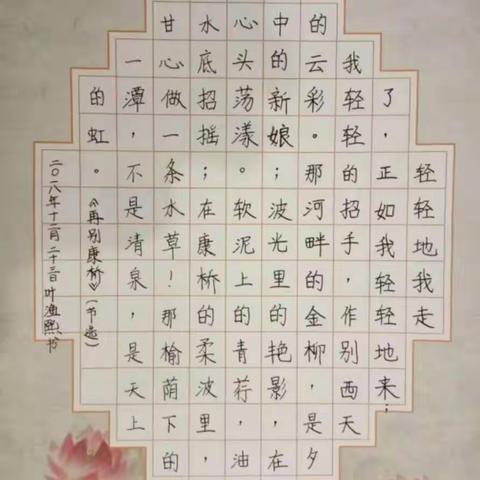 轻轻地我走
了，正如我轻轻地来；
我轻轻的招手，作别西天
的云彩。那河畔的金柳，是夕
中的新娘；波光里的艳影，在
心头荡漾。软泥上的青荇，油
水底招摇；在康桥的柔波里，
甘心做一条水草！那榆荫下的
一潭，不是清泉，是天上
的虹。
《再别康桥》（节选）
二〇一八年十二月二十三日 叶熙书